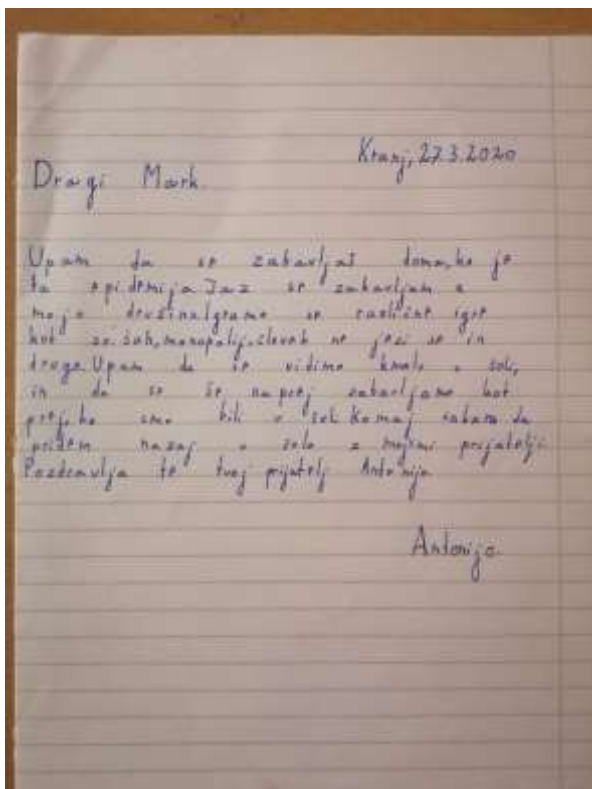 Kranj, 27.3.2020
Dragi Mark.
Upam da se zabavljaš doma, ko je
ta epidemija Jaz se zabavljam z
mojo družino Igramo se različne igre
kot so: šah, monopolij, človek ne jezi se in
druge. Upam da se vidimo kmalu v šoli,
in da se še naprej zabavljamo kot
prej, ko smo bili v šoli. Komaj čakam da
pridem nazaj v šolo z mojimi prijatelji.
Pozdravlja te tvoj prijatelj Antonijo
Antonijo